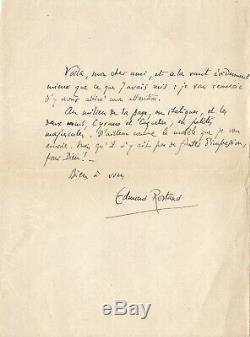 Voilà, mon cher ami, et cela vaut évidemment
mieux que ce que j'avais mis : je vous remercie
d'y avoir attiré mon attention.
Au milieu de la page, en italiques, et les
deux mots, Cyrano et Coquelin, en petites
majuscules. D'ailleurs comme le modèle que je vous
envoie. Mais qu'il n'y ait pas de fautes d'impression,
pour Dieu ! —
Bien à vous
Edmond Rostand